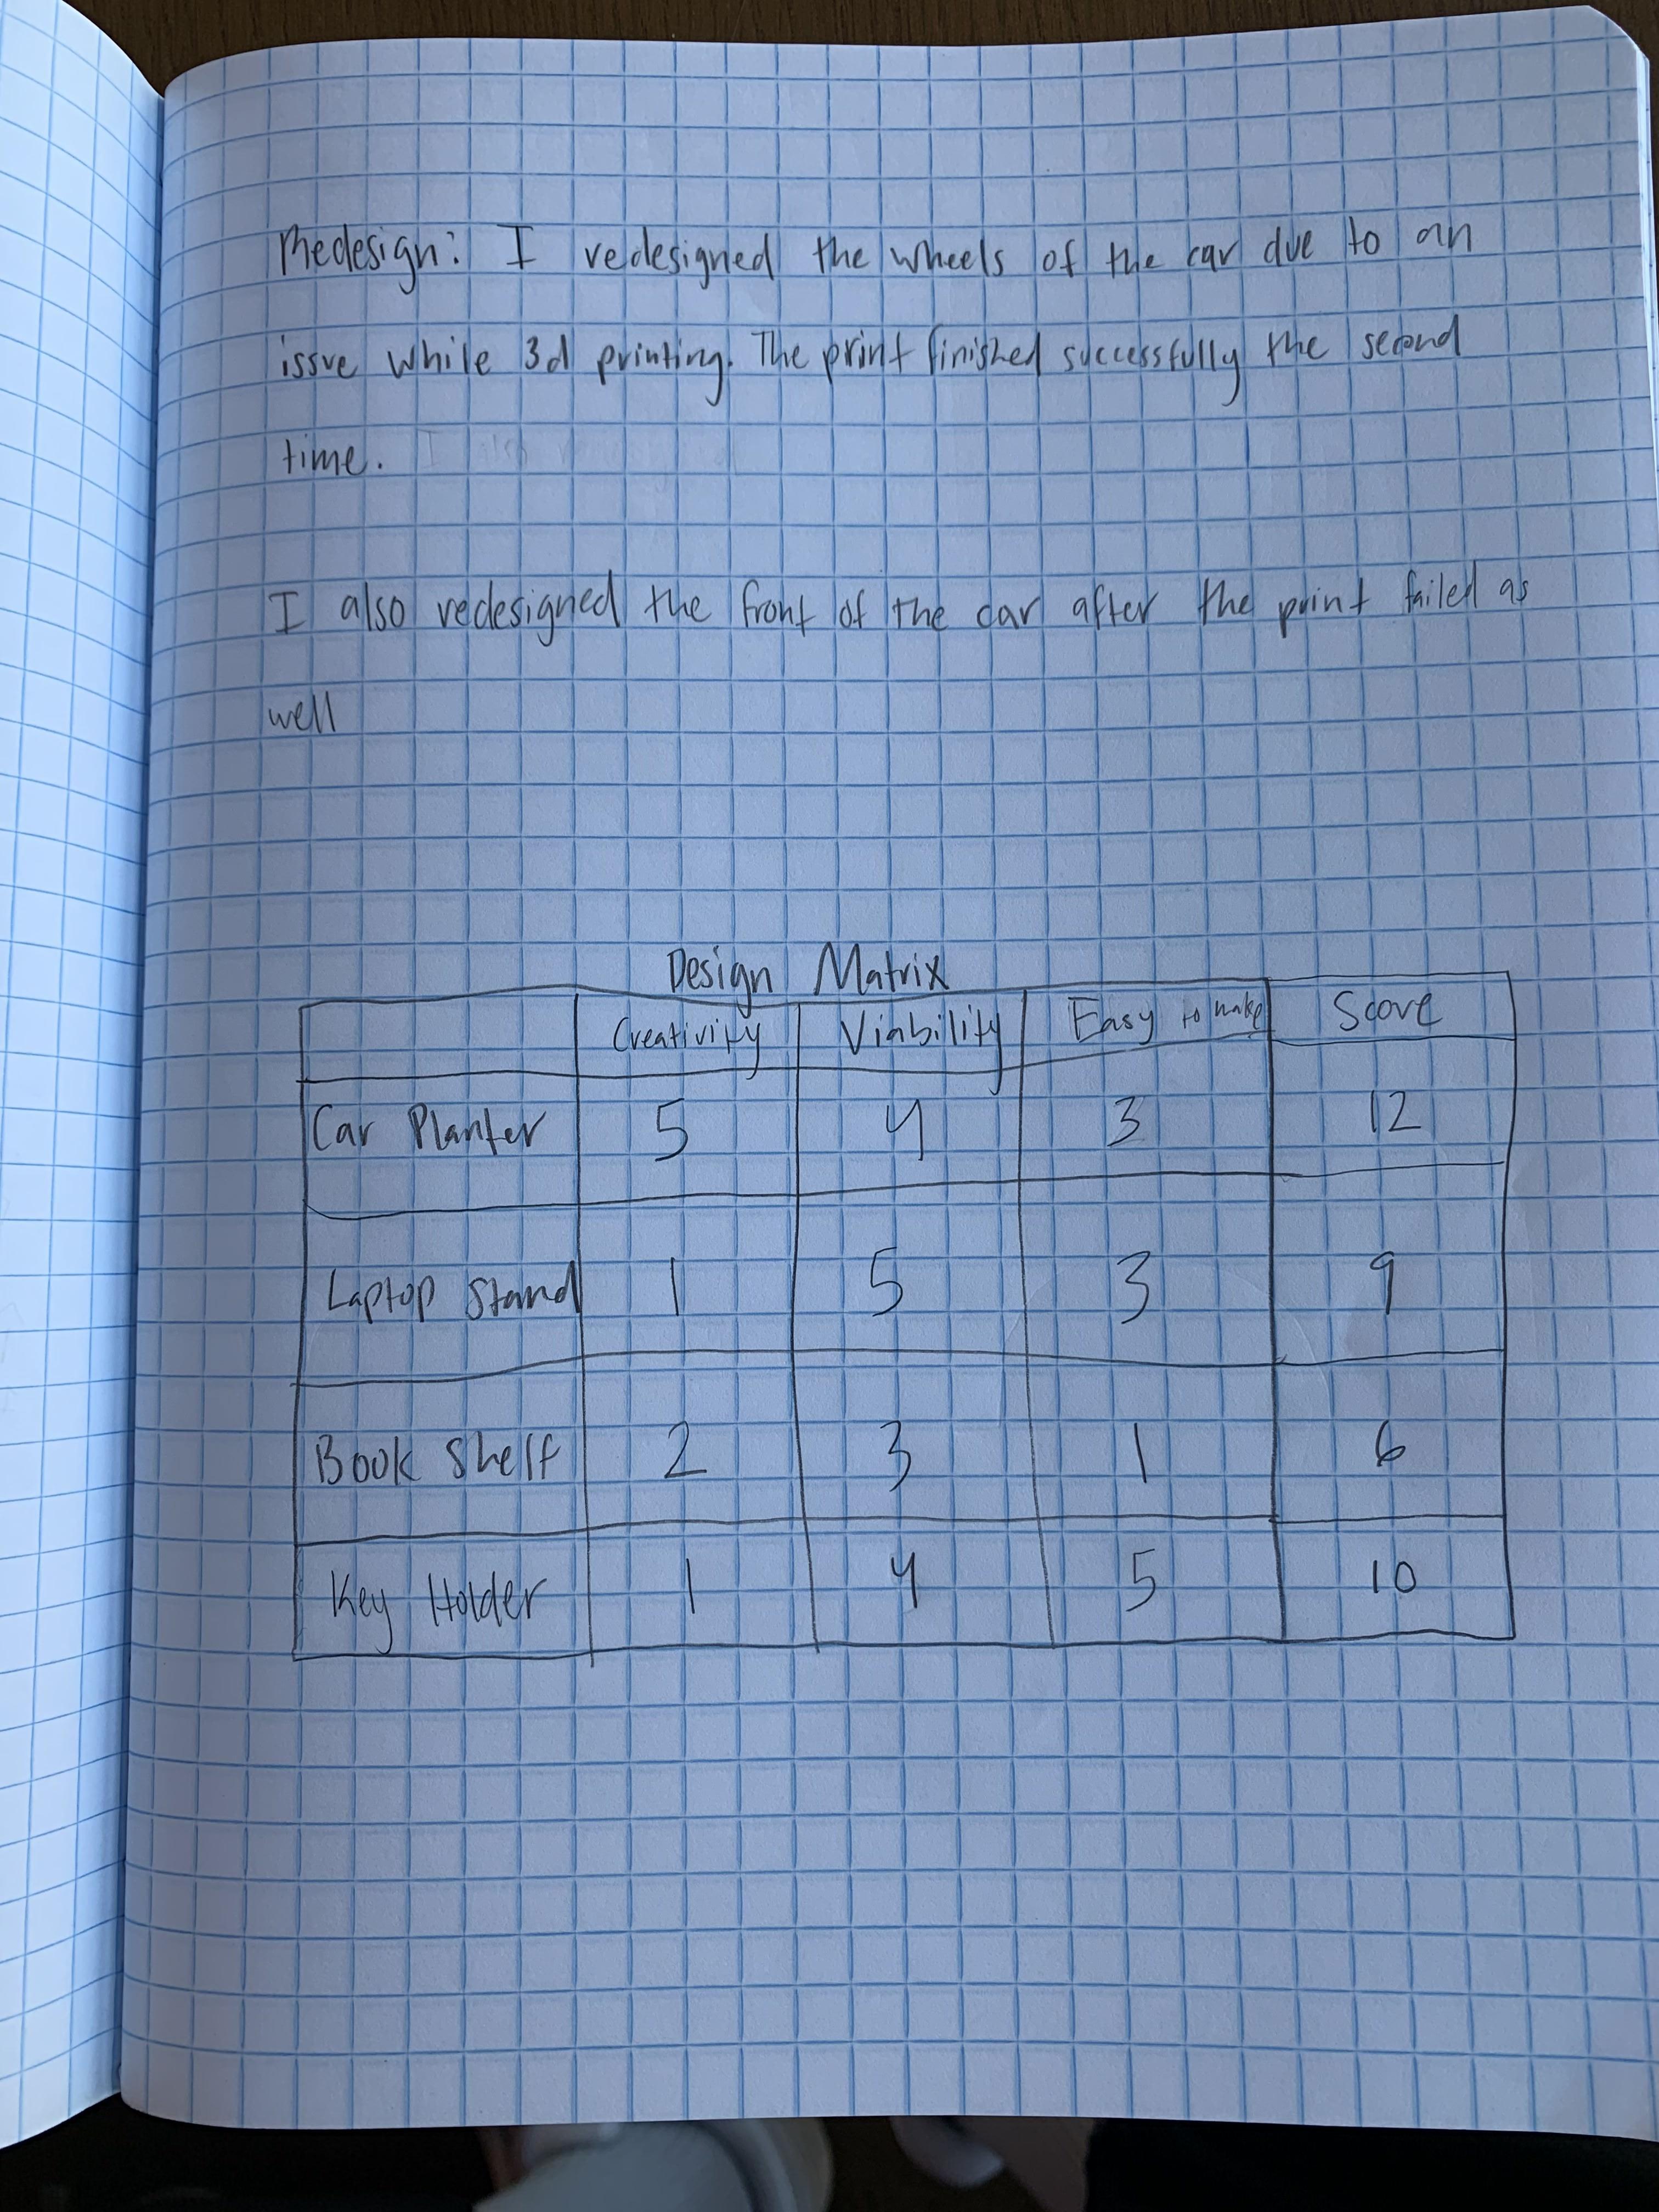 Redesign: I redesigned the wheels of the car due to an
issue while 3d printing. The print finished successfully the second
time. I also
I also redesigned the front of the car after the print failed as
well
Design Matrix
Creativity Viability Easy to make Score
Car Planter 5 4 3 12
Laptop Stand 1 5 3 9
Book Shelf 2 3 1 6
Key Holder 1 4 5 10